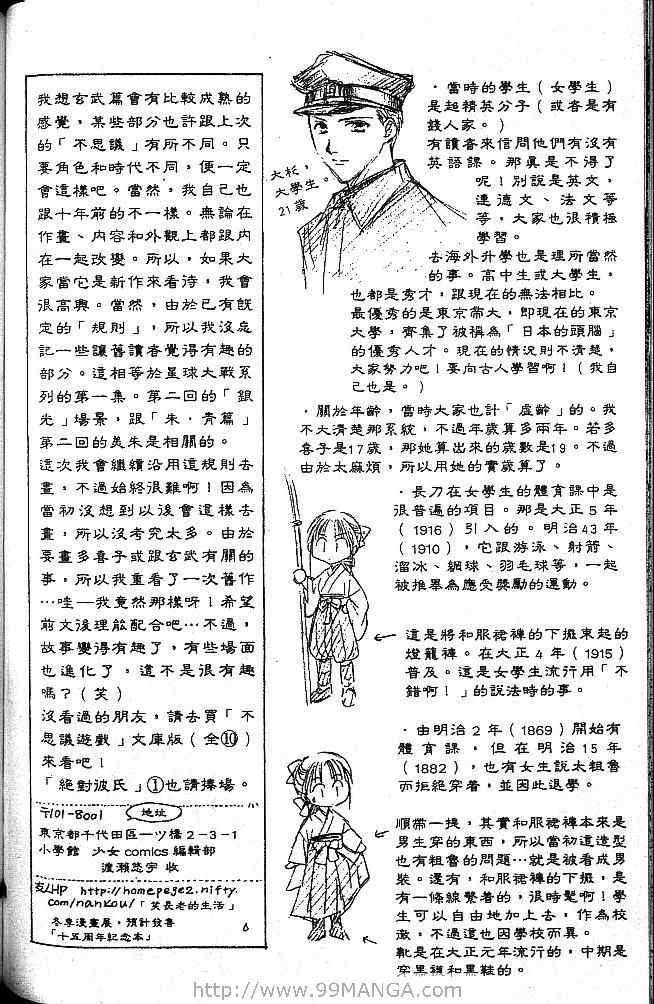 我想玄武篇會有比較成熟的
感覺，某些部分也許跟上次
的「不思議」有所不同。只
要角色和時代不同，便一定
會這樣吧。當然，我自己也
跟十年前的不一樣。無論在
作畫、內容和外觀上都跟內
在一起改變。所以，如果大
家當它是新作來看待，我會
很高興。當然，由於已有既
定的「規則」，所以我沒忘
記一些讓舊讀者覺得有趣的
部分。這相等於星球大戰系
列的第一集。第二回的「銀
光」場景，跟「朱・青篇」
第二回的美朱是相關的。
這次我會繼續沿用這規則去
畫，不過始終很難啊！因為
當初沒想到以後會這樣去
畫，所以沒考究太多。由於
要畫多喜子或跟玄武有關的
事，所以我重看了一次舊作
…哇—我竟然那樣呀！希望
前文後理能配合吧…不過，
故事變得有趣了，有些場面
也進化了。這不是很有趣
嗎？(笑)
沒看過的朋友，請去買「不
思議遊戲」文庫版（全⑩）
來看吧！
「絕對彼氏」①也請捧場。
〒101-8001 地址
東京都千代田區一ツ橋2-3-1
小學館 少女comics編輯部
渡瀨悠宇 收
友人HP http://homepege2.nifty.
com/nankou/「笑長老的生活」
冬季漫畫展，預計發售
「十五周年紀念本」
・當時的學生（女學生）
是超精英分子（或者是有
錢人家。）
有讀者來信問他們有沒有
英語課。那真是不得了
呢！別說是英文，
連德文、法文等
等，大家也很積極
學習。
去海外升學也是理所當然
的事。高中生或大學生，
也都是秀才，跟現在的無法相比。
最優秀的是東京帝大，即現在的東京
大學，齊集了被稱為「日本的頭腦」
的優秀人才。現在的情況則不清楚，
大家努力吧！要向古人學習啊！（我自
己也是。）
大杉，
大學生。
21歲
・關於年齡，當時大家也計「虛齡」的。我
不大清楚那系統，不過年歲算多兩年。若多
喜子是17歲，那她算出來的歲數是19。不過
由於太麻煩，所以用她的實歲算了。
・長刀在女學生的體育課中是
很普遍的項目。那是大正5年
（1916）引入的。明治43年
（1910），它跟游泳、射箭、
溜冰、網球、羽毛球等，一起
被推舉為應受獎勵的運動。
這是將和服裙褲的下擺束起的
燈籠褲。在大正4年（1915）
普及。這是女學生流行用「不
錯啊！」的說法時的事。
・由明治2年（1869）開始有
體育課，但在明治15年
（1882），也有女生說太粗魯
而拒絕穿着，並因此退學。
順帶一提，其實和服裙褲本來是
男生穿的東西，所以當初這造型
也有粗魯的問題…就是被看成男
裝。還有，和服裙褲的下擺，是
有一條線繫着的，很時髦啊！學
生可以自由地加上去，作為校
徽，不過這也因學校而異。
靴是在大正元年流行的，中期是
穿黑襪和黑鞋的。
http://www.99MANGA.com